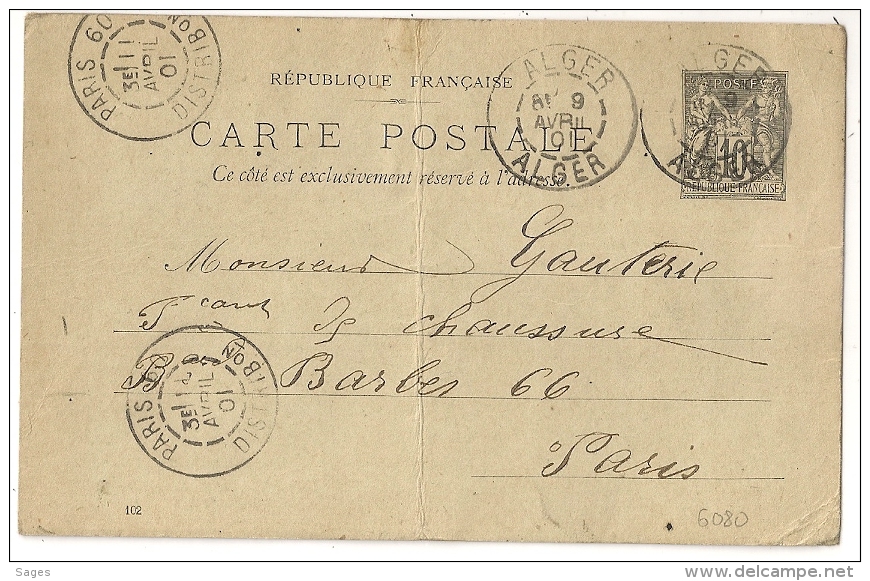 PARIS 60 DISTRIBON
3E 11
AVRIL
01
RÉPUBLIQUE FRANÇAISE
CARTE POSTALE
Ce côté est exclusivement réservé à l'adresse.
ALGER
9
AVRIL
01
ALGER
ALGER
9
POSTES
10
RÉPUBLIQUE FRANÇAISE
Monsieur Gauterie
Fcant De chaussure
B Barbes 66
Paris
PARIS 60 DISTRIBON
3E 11
AVRIL
01
102
6080
Sages
delcampe.net